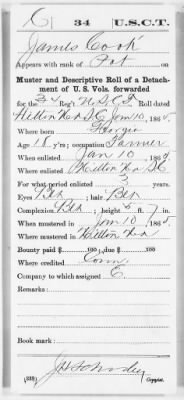 C | 34 | U.S.C.T.
James Cook
Appears with rank of Pvt on
Muster and Descriptive Roll of a Detach-
ment of U. S. Vols. forwarded
for the 34 Reg't U.S.C.T. Roll dated
Hilton Head S.C. Jan 10, 1865.
Where born Georgia
Age 18 y'rs; occupation Farmer
When enlisted Jan 10, 1865
Where enlisted Hilton Head S.C.
For what period enlisted 3 years.
Eyes Blk; hair Blk
Complexion Blk; height 5 ft. 7 in.
When mustered in Jan 10, 1865.
Where mustered in Hilton Head
Bounty paid $ 100; due $ 100
Where credited Conn.
Company to which assigned C.
Remarks:
Book mark:
Copyist.